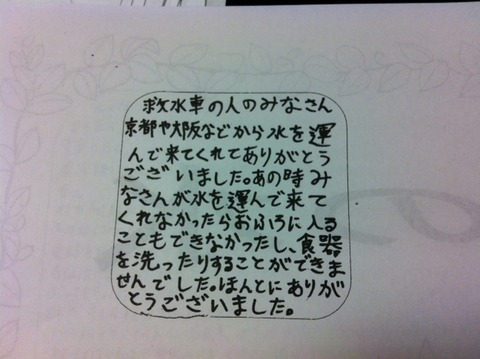 救水車の人のみなさん
京都や大阪などから水を運
んで来てくれてありがとう
ございました。あの時み
なさんが水を運んで来て
くれなかったらおふろに入る
こともできなかったし、食器
を洗ったりすることができま
せんでした。ほんとにありが
とうございました。